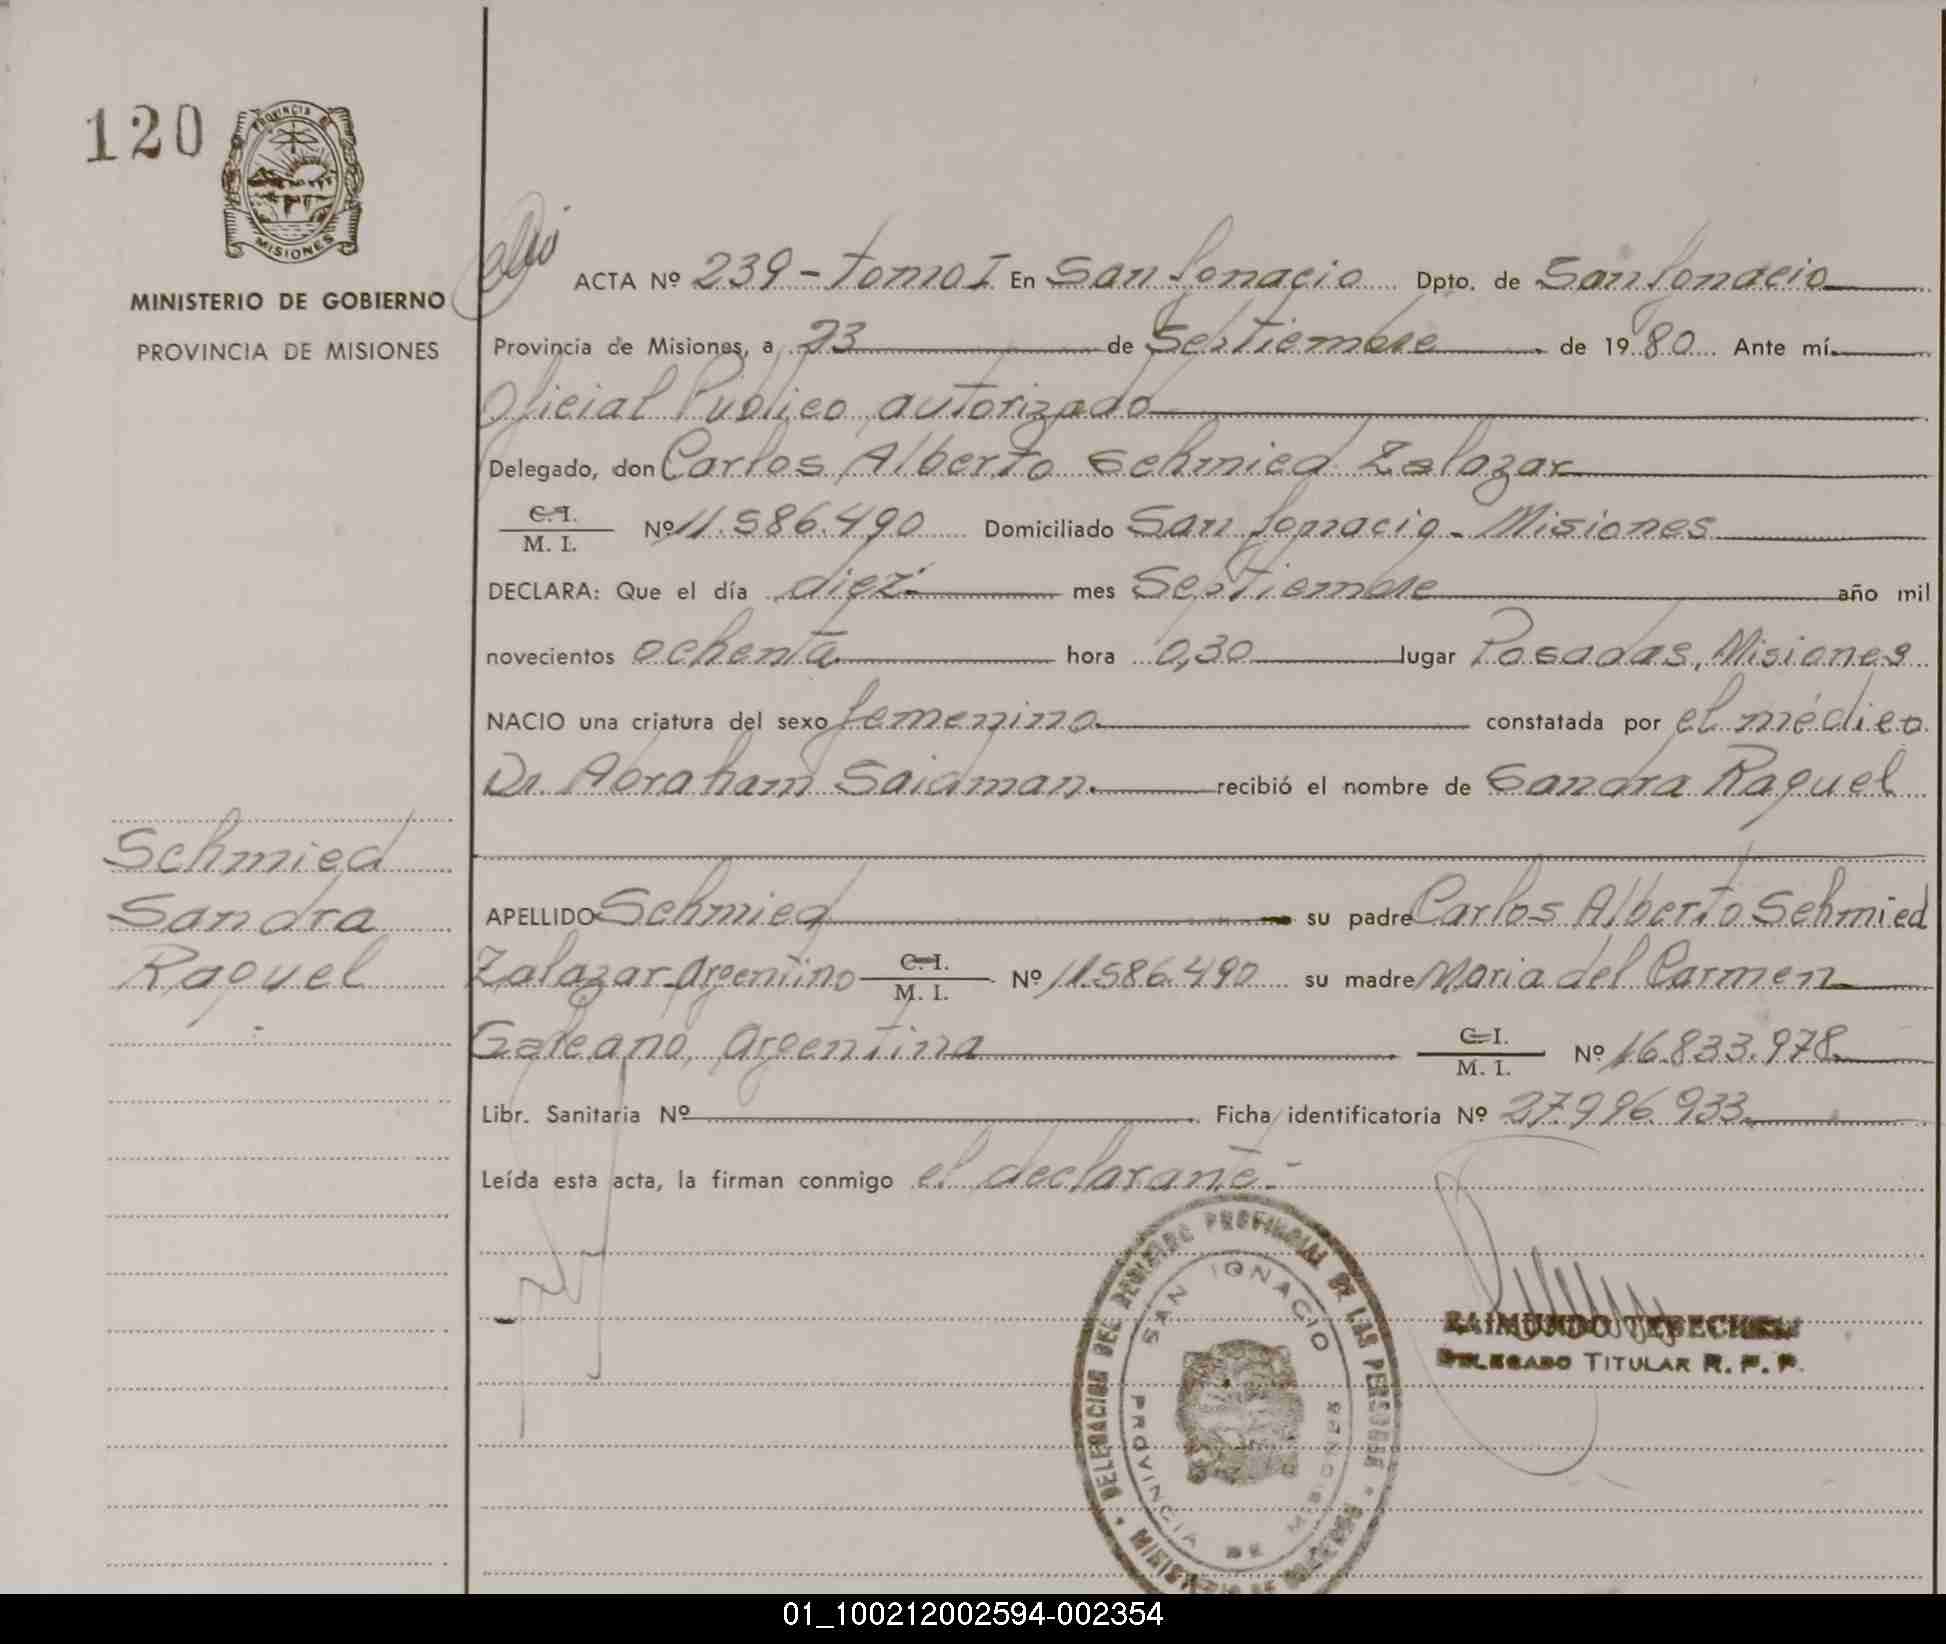 120
PROVINCIA DE
MISIONES
MINISTERIO DE GOBIERNO
PROVINCIA DE MISIONES
ACTA Nº 239 - tomo I En San Ignacio Dpto. de San Ignacio
Provincia de Misiones, a 23 de Septiembre de 1980 Ante mí
Oficial Público autorizado
Delegado, don Carlos Alberto Schmied Zalazar
C. I.
M. I. Nº 11.586.490 Domiciliado San Ignacio - Misiones
DECLARA: Que el día diez mes Septiembre año mil
novecientos ochenta hora 0,30 lugar Posadas, Misiones
NACIO una criatura del sexo femenino constatada por el médico
Dr. Abraham Saidman. recibió el nombre de Sandra Raquel
Schmied
Sandra
Raquel
APELLIDO Schmied su padre Carlos Alberto Schmied
Zalazar Argentino C. I. M. I. Nº 11.586.490 su madre Maria del Carmen
Galeano, Argentina C. I. M. I. Nº 16.833.978
Libr. Sanitaria Nº Ficha identificatoria Nº 27.996.933
Leída esta acta, la firman conmigo el declarante.-
DELEGACION DEL REGISTRO PROVINCIAL DE LAS PERSONAS
SAN IGNACIO
PROVINCIA DE MISIONES
RAIMUNDO
DELEGADO TITULAR R. P. P.
01_100212002594-002354